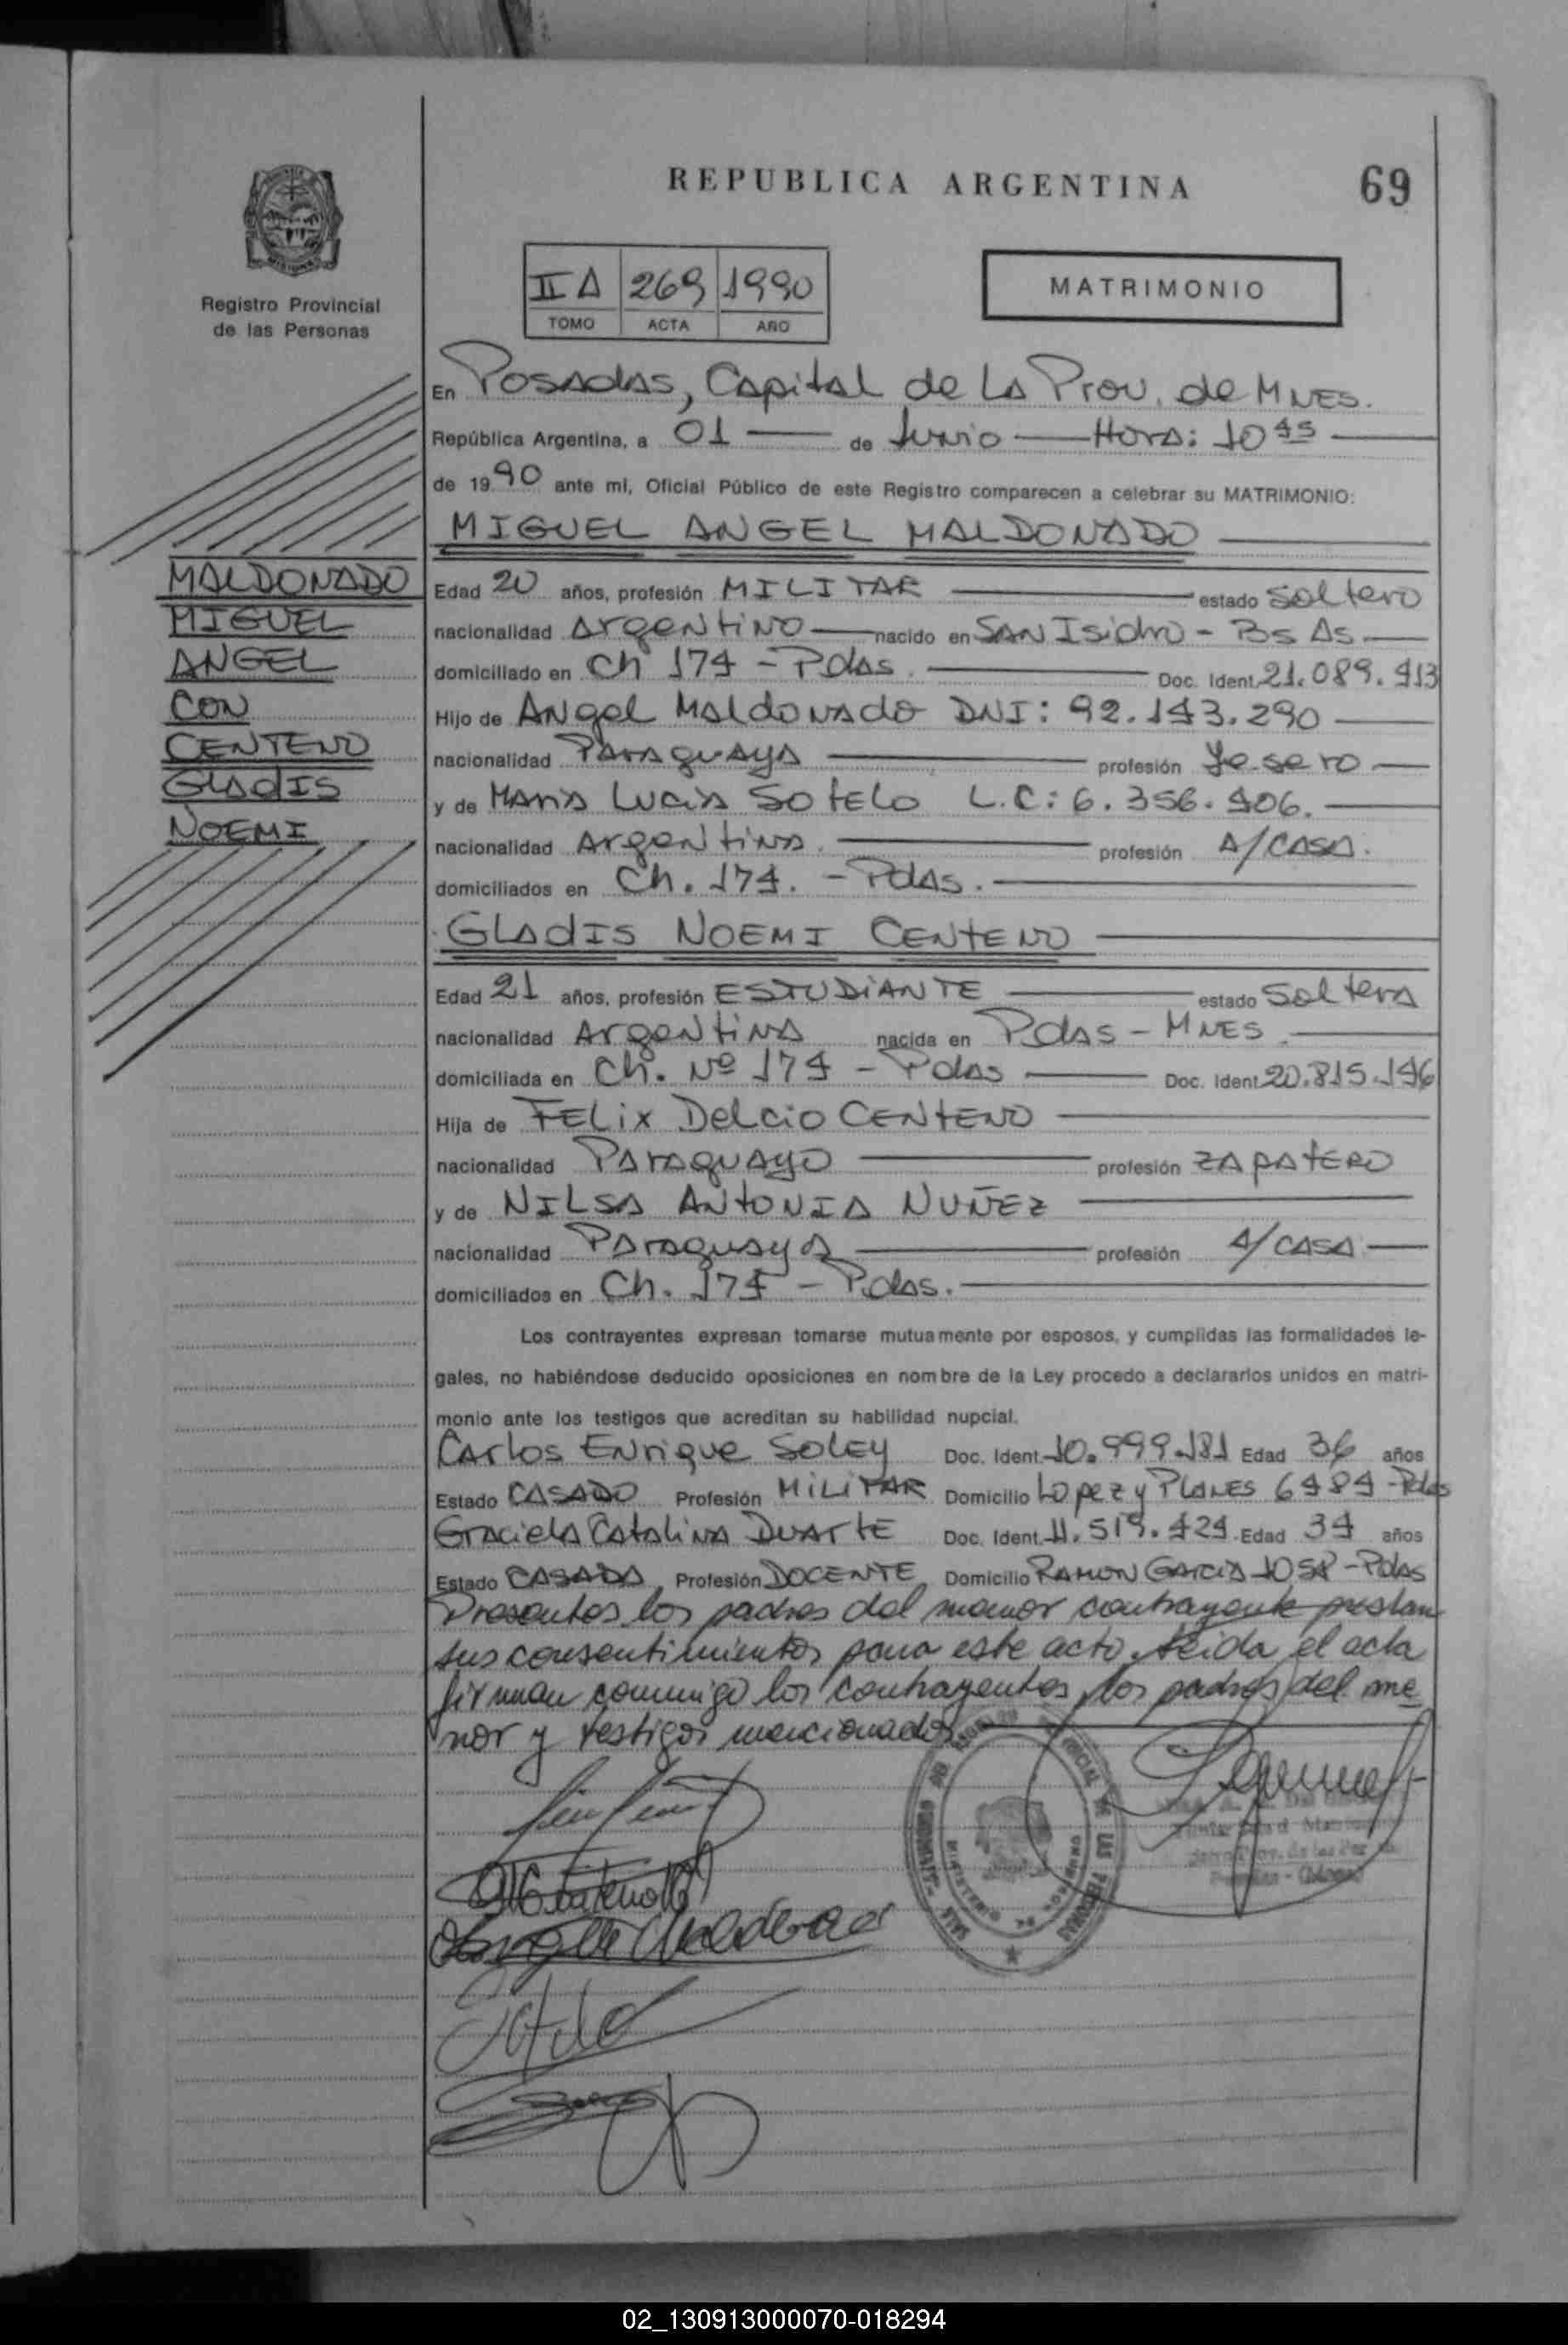 REPUBLICA ARGENTINA
69
Registro Provincial
de las Personas
II A 269 1990
TOMO ACTA AÑO
MATRIMONIO
En Posadas, Capital de La Prov. de MNES.
República Argentina, a 01 de Junio Hora: 10 45
de 1990 ante mi, Oficial Público de este Registro comparecen a celebrar su MATRIMONIO:
MIGUEL ANGEL MALDONADO
MALDONADO
MIGUEL
ANGEL
CON
CENTENO
GLADIS
NOEMI
Edad 20 años, profesión MILITAR estado Soltero
nacionalidad Argentino nacido en SAN Isidro - Bs As
domiciliado en Ch 174 - Pdas. Doc. Ident. 21.089.413
Hijo de Angel Maldonado DNI: 92.143.290
nacionalidad Paraguaya profesión Yesero
y de Maria Lucia Sotelo L.C: 6.356.406.
nacionalidad Argentina. profesión A/CASA.
domiciliados en Ch. 174. - Pdas.
GLADIS NOEMI CENTENO
Edad 21 años, profesión ESTUDIANTE estado Soltera
nacionalidad Argentina nacida en Pdas - MNES.
domiciliada en Ch. Nº 174 - Pdas Doc. Ident. 20.815.146
Hija de FELIX DELCIO CENTENO
nacionalidad Paraguayo profesión ZAPATERO
y de NILSA ANTONIA NUÑEZ
nacionalidad Paraguaya profesión A/CASA
domiciliados en Ch. 174 - Pdas.
Los contrayentes expresan tomarse mutuamente por esposos, y cumplidas las formalidades le-
gales, no habiéndose deducido oposiciones en nombre de la Ley procedo a declararlos unidos en matri-
monio ante los testigos que acreditan su habilidad nupcial.
Carlos Enrique Soley Doc. Ident. 10.999.181 Edad 36 años
Estado CASADO Profesión MILITAR Domicilio Lopez y Planes 6484 - Pdas
Graciela Catalina Duarte Doc. Ident. 11.519.424 Edad 34 años
Estado CASADA Profesión DOCENTE Domicilio RAMON GARCIA - Pdas
Presentes los padres del menor contrayente prestan
sus consentimientos para este acto. Leida el acta
firman conmigo los contrayentes, los padres del me
nor y testigos mencionados
02_130913000070-018294